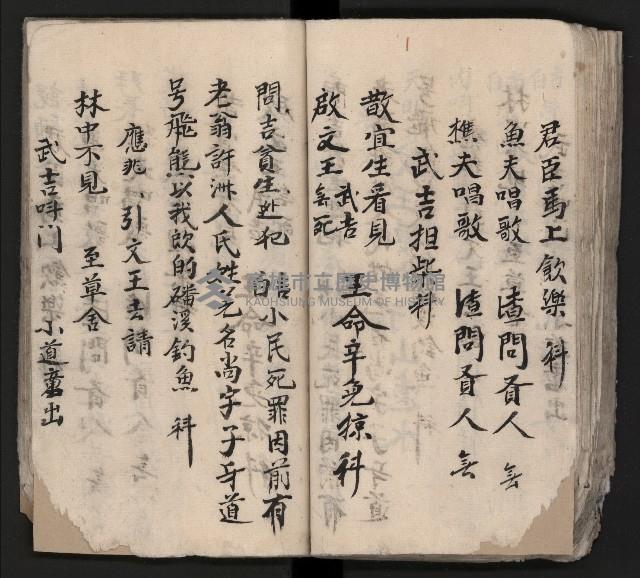 君臣馬上飲樂科
魚夫唱歌 查問贤人 無
樵夫唱歌 查問贤人 無
武吉担柴科
散宜生看見
啟文王武吉無死 王命辛免掠科
問吉貧生处犯 白 小民死罪因前有
老翁許洲人氏姓姜名尚字子牙道
号飛熊以我故的磻溪釣魚 科
應兆、引文王去請
林中不見 至草舍
武吉呌门 小道童出
高雄市立歷史博物館
KAOHSIUNG MUSEUM OF HISTORY